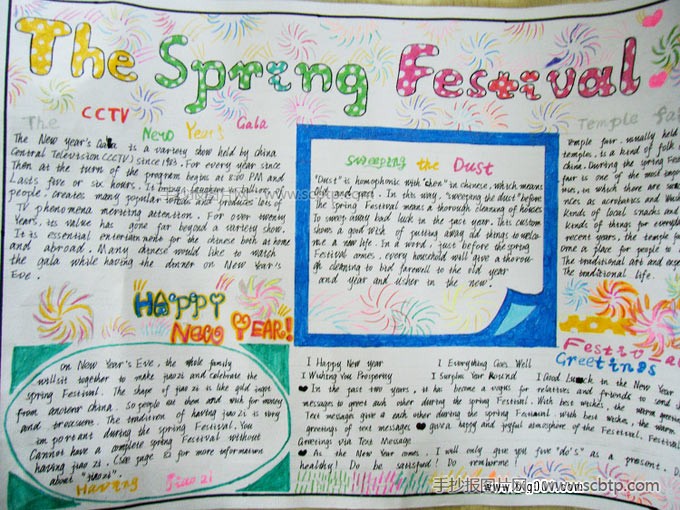 The Spring Festival
The CCTV
New Year's Gala
The New year's Gala is a variety show held by China
Central Television (CCTV) since 1983. For every year since
Then at the turn of the program begins at 8:00 PM and
Lasts five or six hours. It brings laughter to billion
people, creates many popular words and produces lots of
TV phenomena meriting attention. For over twenty
Years, its value has gone far beyond a variety show.
It is essential entertainment for the chinese both at home
and abroad. Many chinese would like to watch
the gala while having the dinner on New Year's
Eve.
Sweeping the Dust
"Dust" is homophonic with "chen" in chinese, which means
old and past. In this way, "sweeping the dust" before
the Spring Festival means a thorough cleaning of houses
To sweep away bad luck in the past year. This custom
shows a good wish of putting away old things to welco-
me a new life. In a word, just before the spring
Festival comes, every household will give a thorou-
gh cleaning to bid farewell to the old year
and year and usher in the new.
Temple fair
Temple fair, usually held
temples, is a kind of folk
china. During the spring Fes
fair is one of the most impo
ies, in which there are
ces as acrobatics and
kinds of local snacks and
kinds of things for everyday
recent years, the temple fa
ome a place for people to
The traditional art and
The traditional life.
HAPPY
NEW YEAR!
On New Year's Eve, the whole family
will sit together to make jiaozi and celebrate the
spring Festival. The shape of jiao zi is like gold ingot
from ancient china. So people eat them and wish for money
and treasure. The tradition of having jiao zi is very
important during the spring Festival. You
Cannot have a complete spring Festival without
having jiao zi. (See page for more information
about "jiao zi".
Having Jiao zi
Festival
Greetings
I Happy New year I Everything Goes Well
I Wishing You Prosperity I Surplus Year Round I Good Luck in the New Year
In the past two years, it has become a vogue for relatives and friends to send
messages to greet each other during the spring Festival. With best wishes, the warm greetin
Text message give a each other during the spring Festival. With best wishes, the warm
greetings of text messages gave a happy and joyful atmosphere of the Festival. Festival
Greetings via Text Message
As the New Year comes, I will only give you five "do's" as a present. D
healthy! Do be satisfied! Do
手抄报图片网 www.scbtp.com